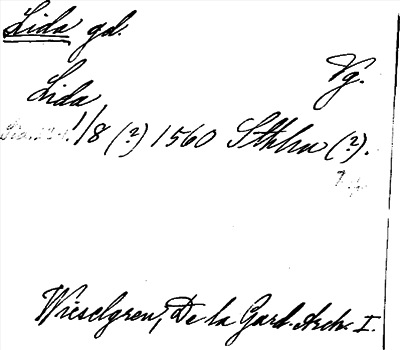 Lida gd.
Vg.
Lida
1/8 (?) 1560 Sthlm (?).
Wieselgren, De la Gard. Arch. I.